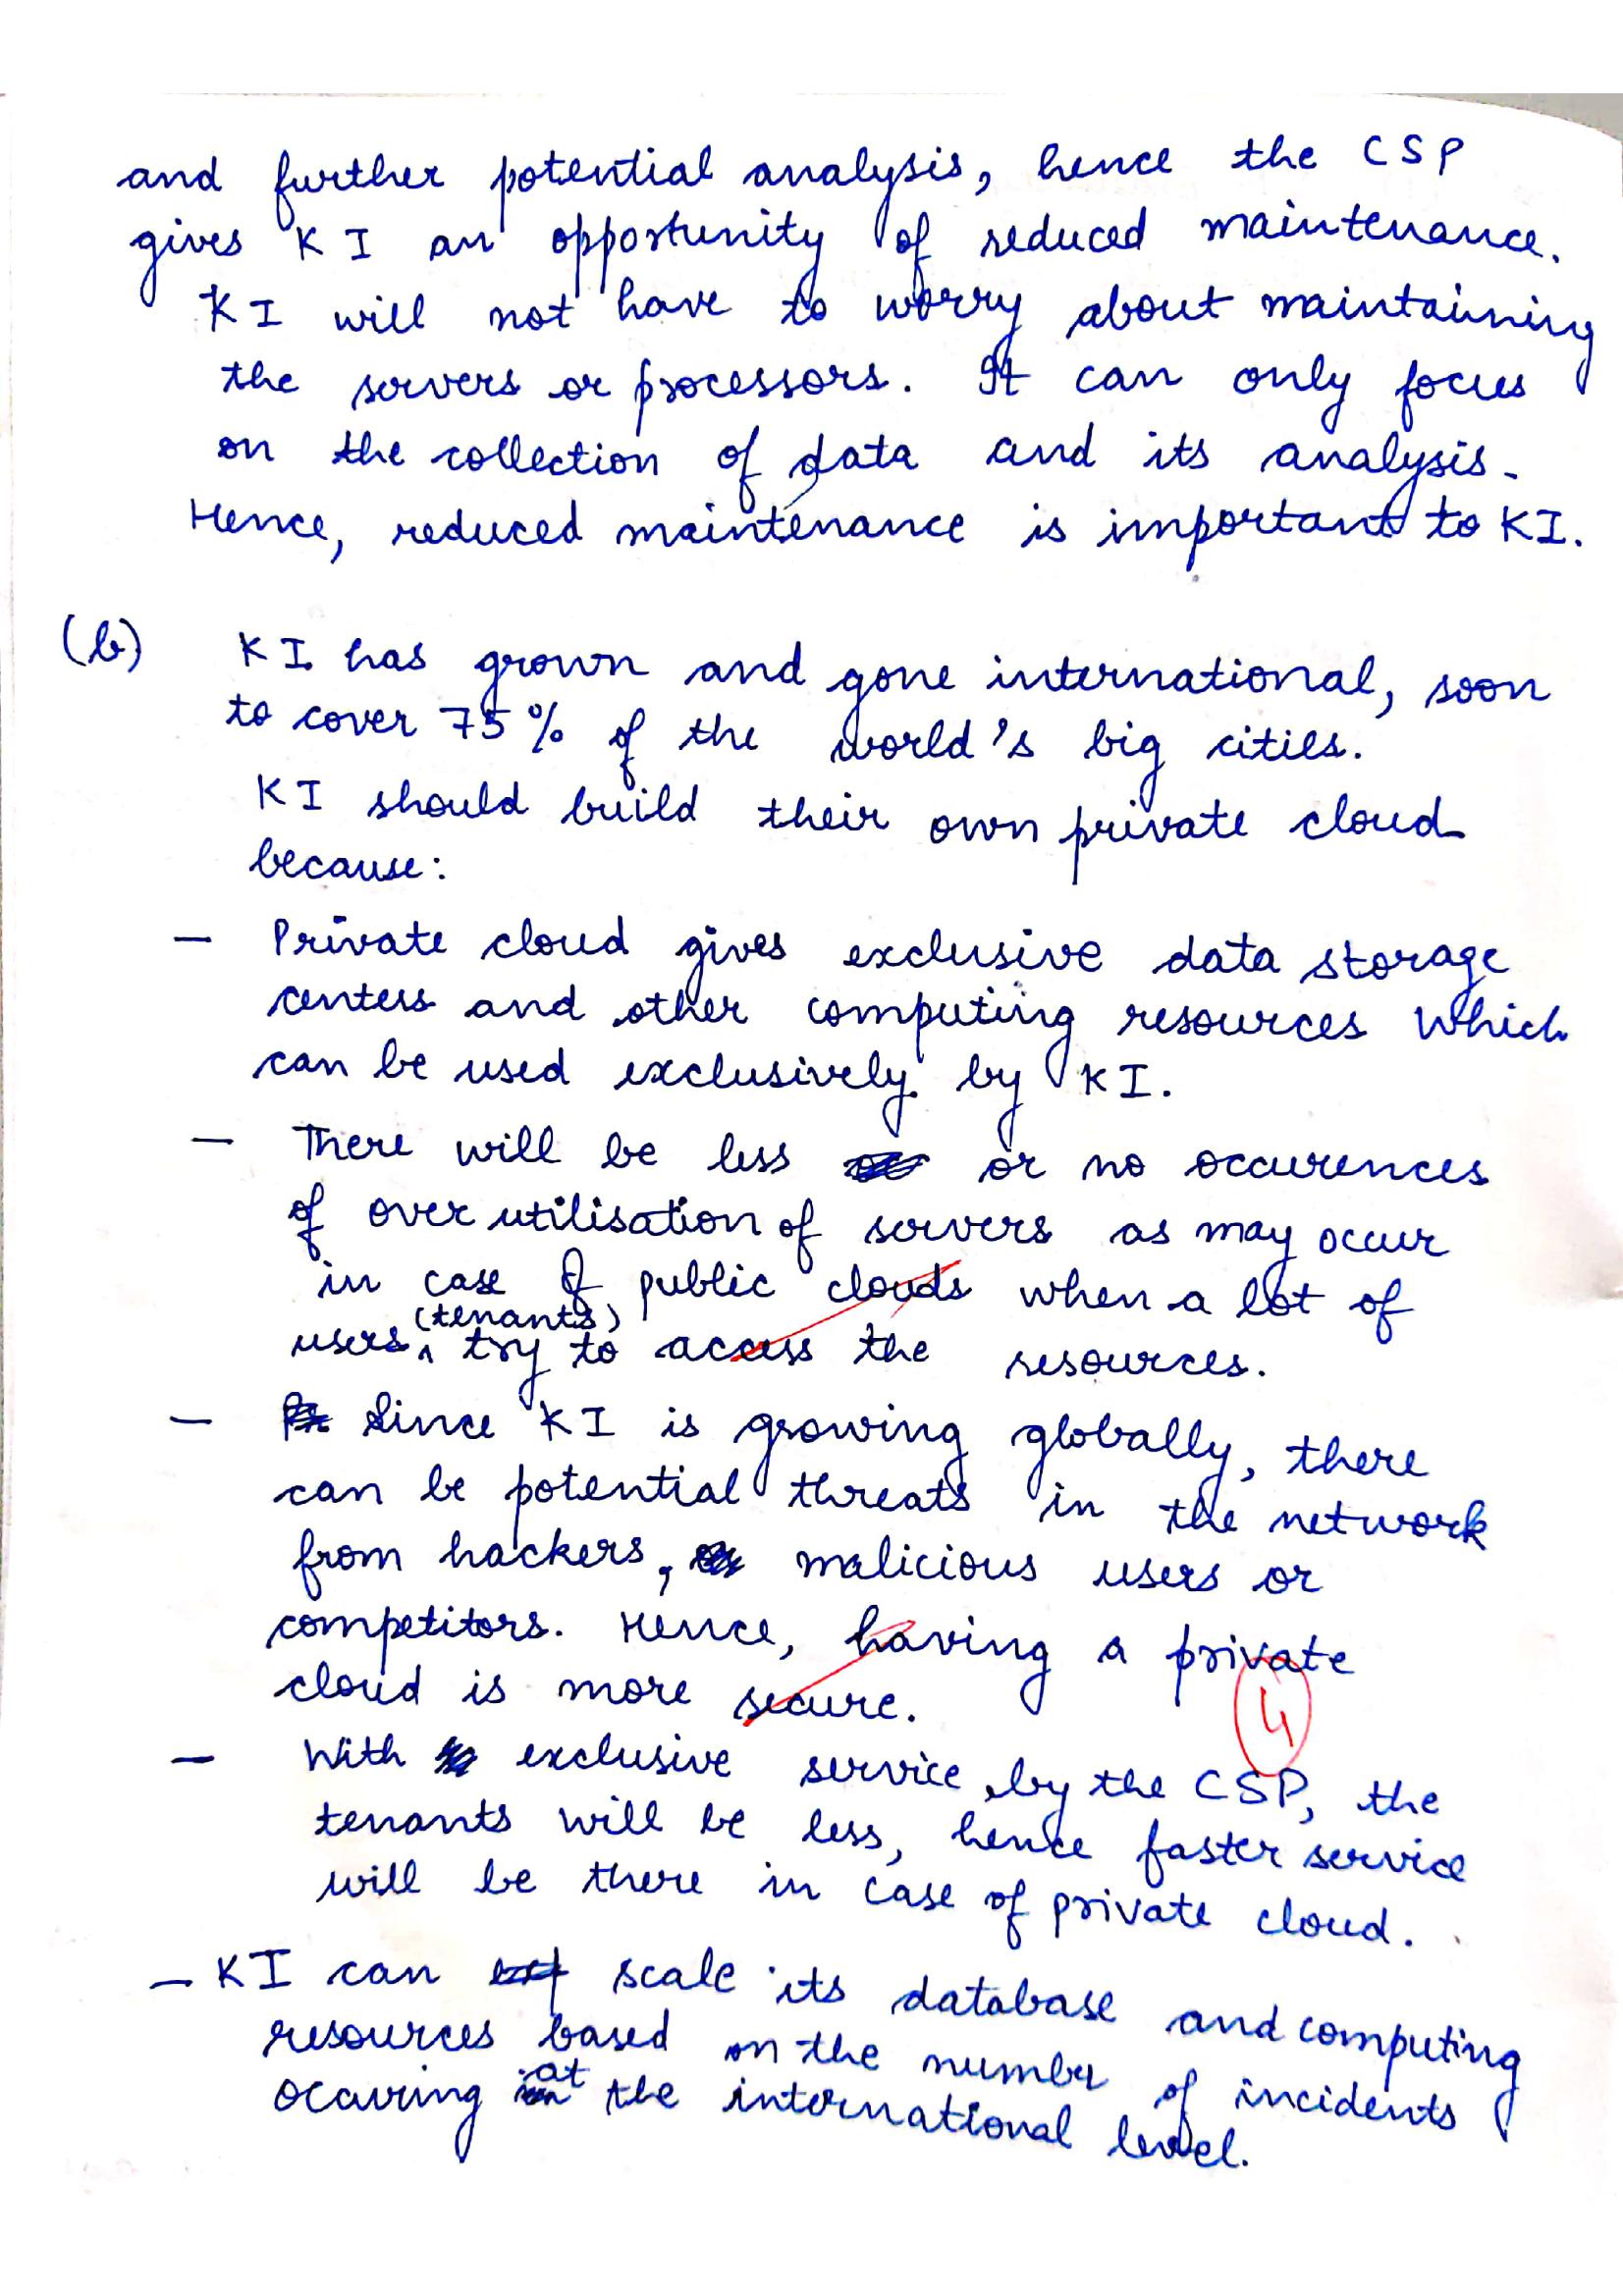 and further potential analysis, hence the CSP
gives KI an opportunity of reduced maintenance.
KI will not have to worry about maintaining
the servers or processors. It can only focus
on the collection of data and its analysis.
Hence, reduced maintenance is important to KI.
(b) KI has grown and gone international, soon
to cover 75% of the world's big cities.
KI should build their own private cloud
because:
— Private cloud gives exclusive data storage
centers and other computing resources which
can be used exclusively by KI.
— There will be less or no occurences
of over utilisation of servers as may occur
in case of public clouds when a lot of
users (tenants) try to access the resources.
— Since KI is growing globally, there
can be potential threats in the network
from hackers, malicious users or
competitors. Hence, having a private
cloud is more secure.
4
— With exclusive service by the CSP, the
tenants will be less, hence faster service
will be there in case of private cloud.
— KI can scale its database and computing
resources based on the number of incidents
occuring at the international level.